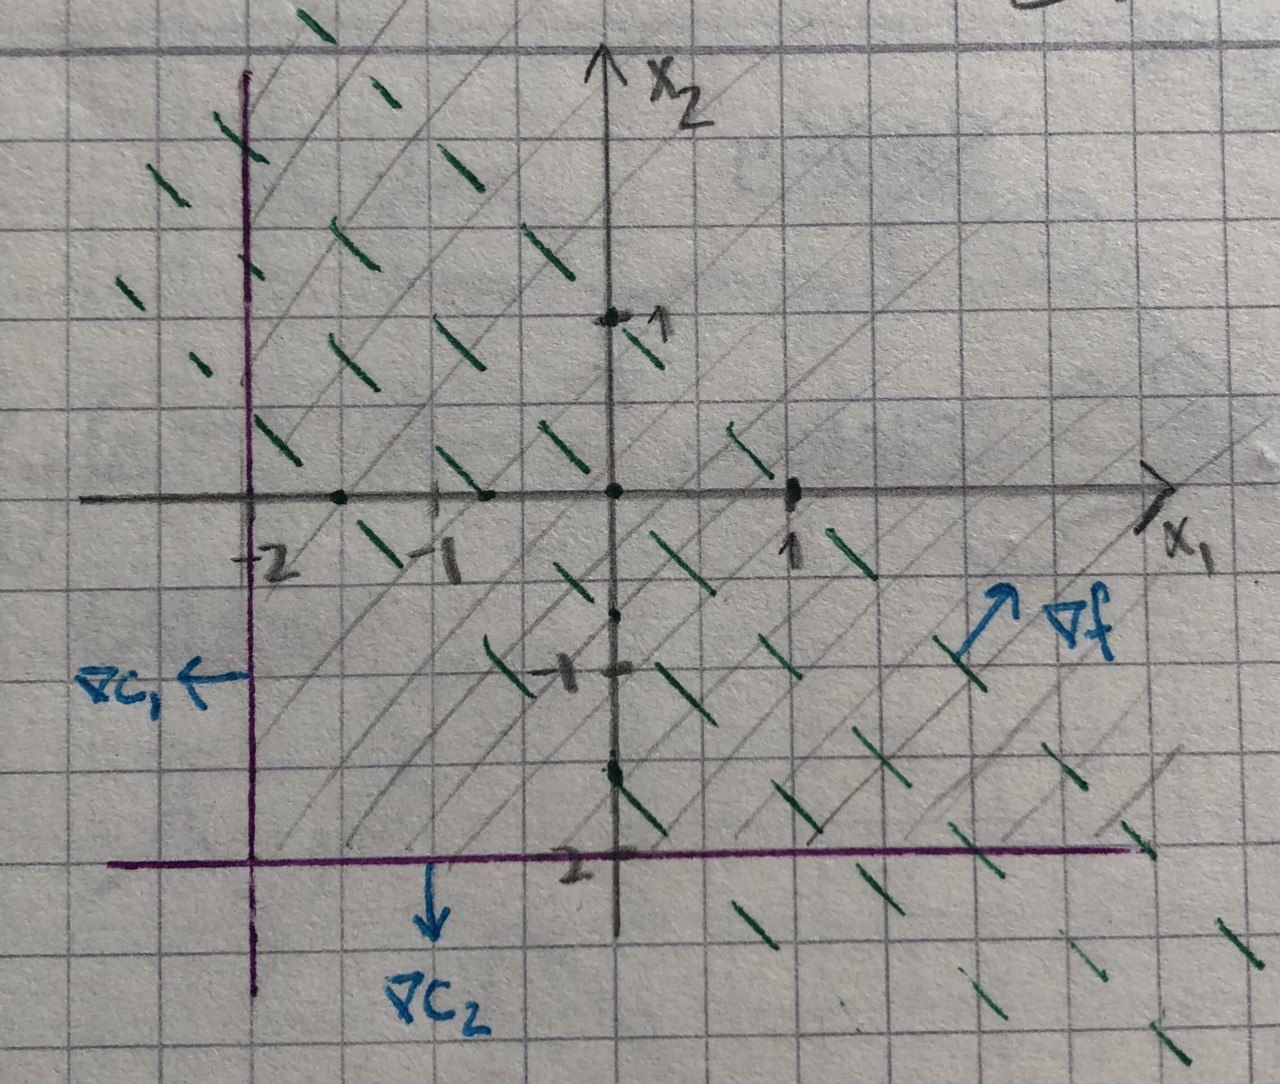 x₂
1
-2
-1
1
x₁
∇f
∇c₁
-1
2
∇c₂